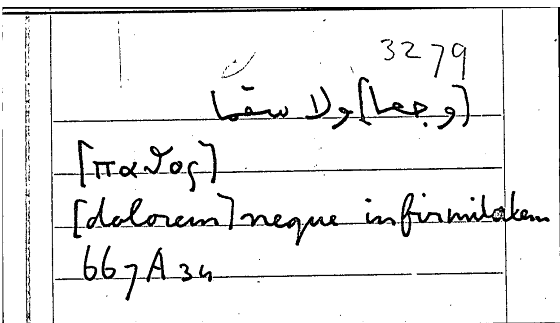 3279
[وجعا] ولا سقما
[παθος]
[dolorem] neque infirmitatem
667A34